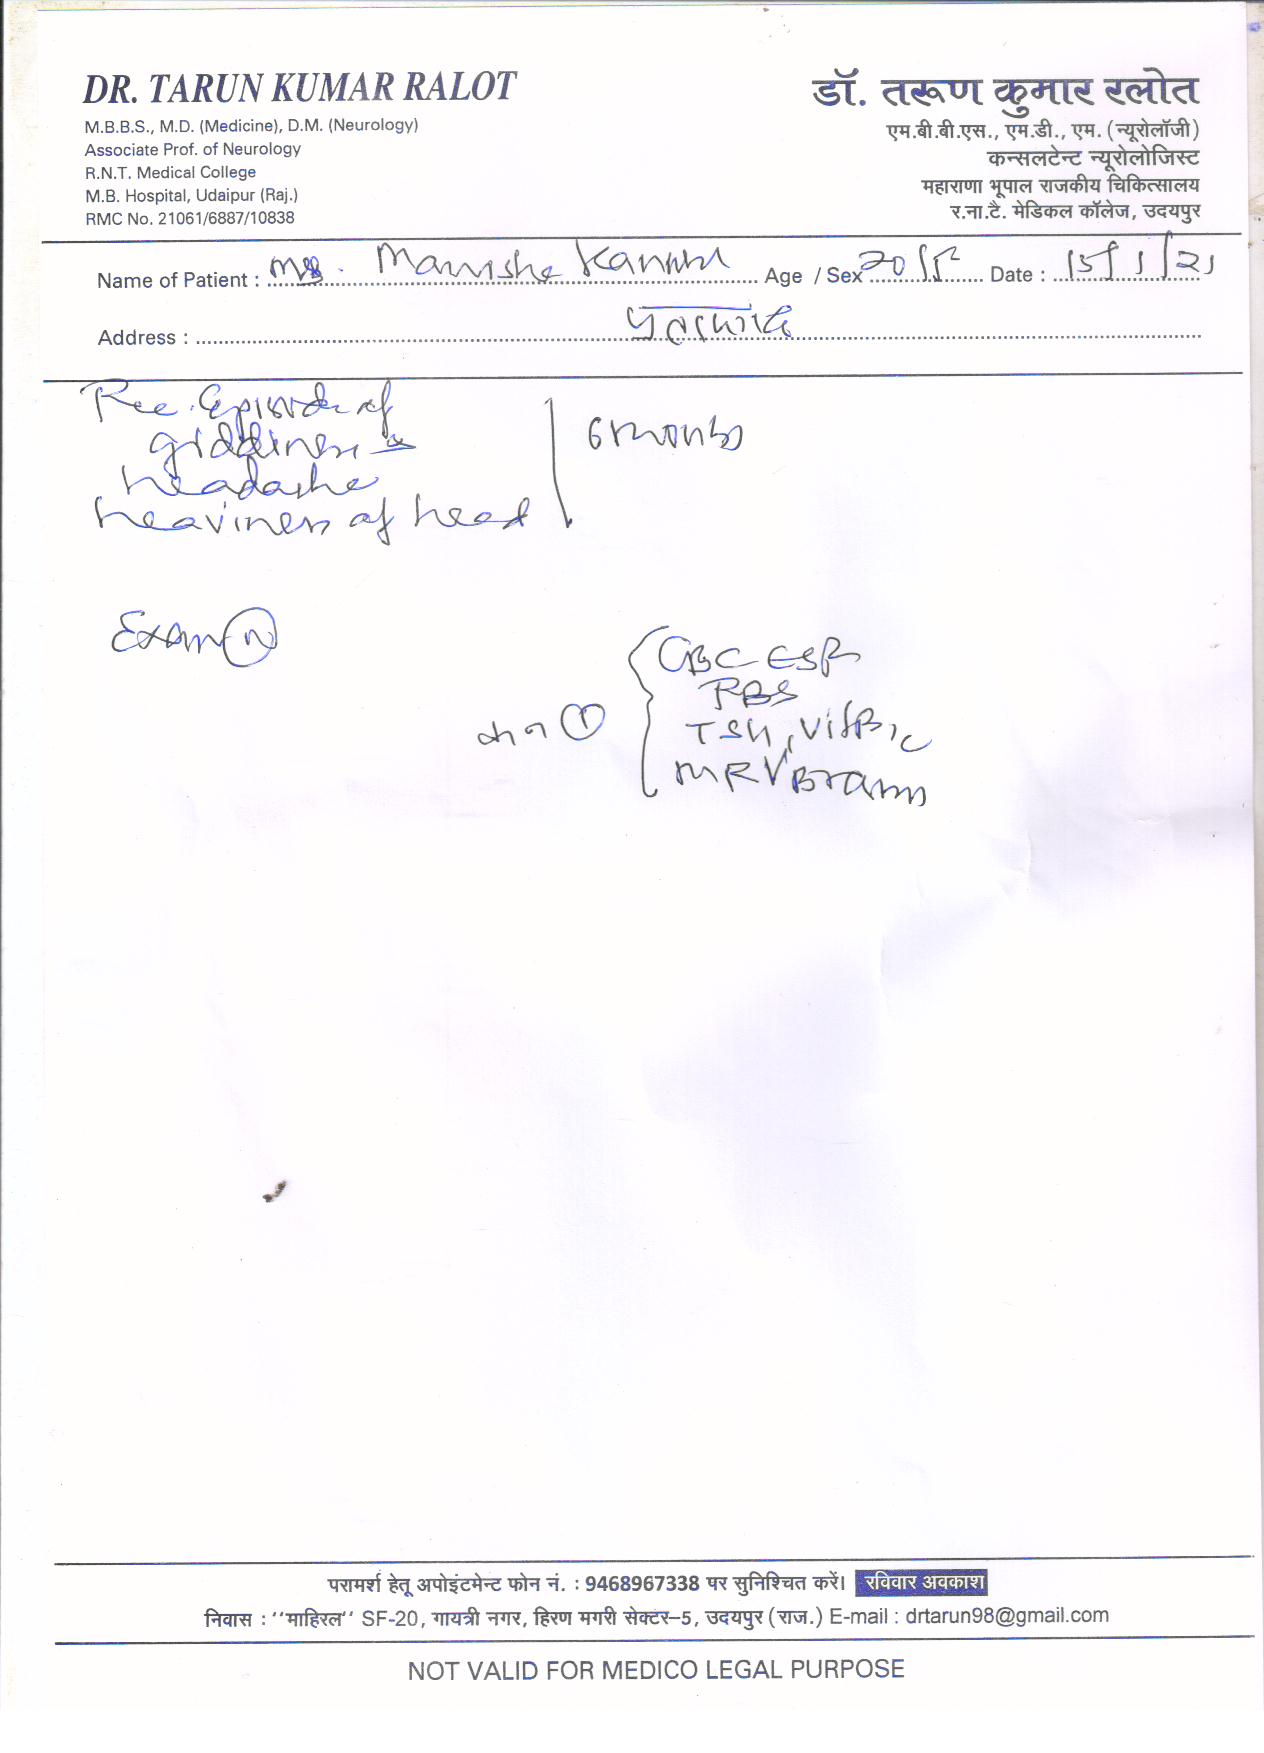 DR. TARUN KUMAR RALOT
M.B.B.S., M.D. (Medicine), D.M. (Neurology)
Associate Prof. of Neurology
R.N.T. Medical College
M.B. Hospital, Udaipur (Raj.)
RMC No. 21061/6887/10838
डॉ. तरूण कुमार रलोत
एम.बी.बी.एस., एम.डी., एम. (न्यूरोलॉजी)
कन्सलटेन्ट न्यूरोलोजिस्ट
महाराणा भूपाल राजकीय चिकित्सालय
र.ना.टै. मेडिकल कॉलेज, उदयपुर
Name of Patient : Manisha Age / Sex 20/F Date : 15/1/21
Address :
Rec. Episode of
giddiness
headache
heaviness of head
6 months
Exam N
CBC ESR
RBS
TSH, Vit B12
MRV Brain
परामर्श हेतू अपोइंटमेन्ट फोन नं. : 9468967338 पर सुनिश्चित करें। रविवार अवकाश
निवास : ''माहिरल'' SF-20, गायत्री नगर, हिरण मगरी सेक्टर–5, उदयपुर (राज.) E-mail : drtarun98@gmail.com
NOT VALID FOR MEDICO LEGAL PURPOSE